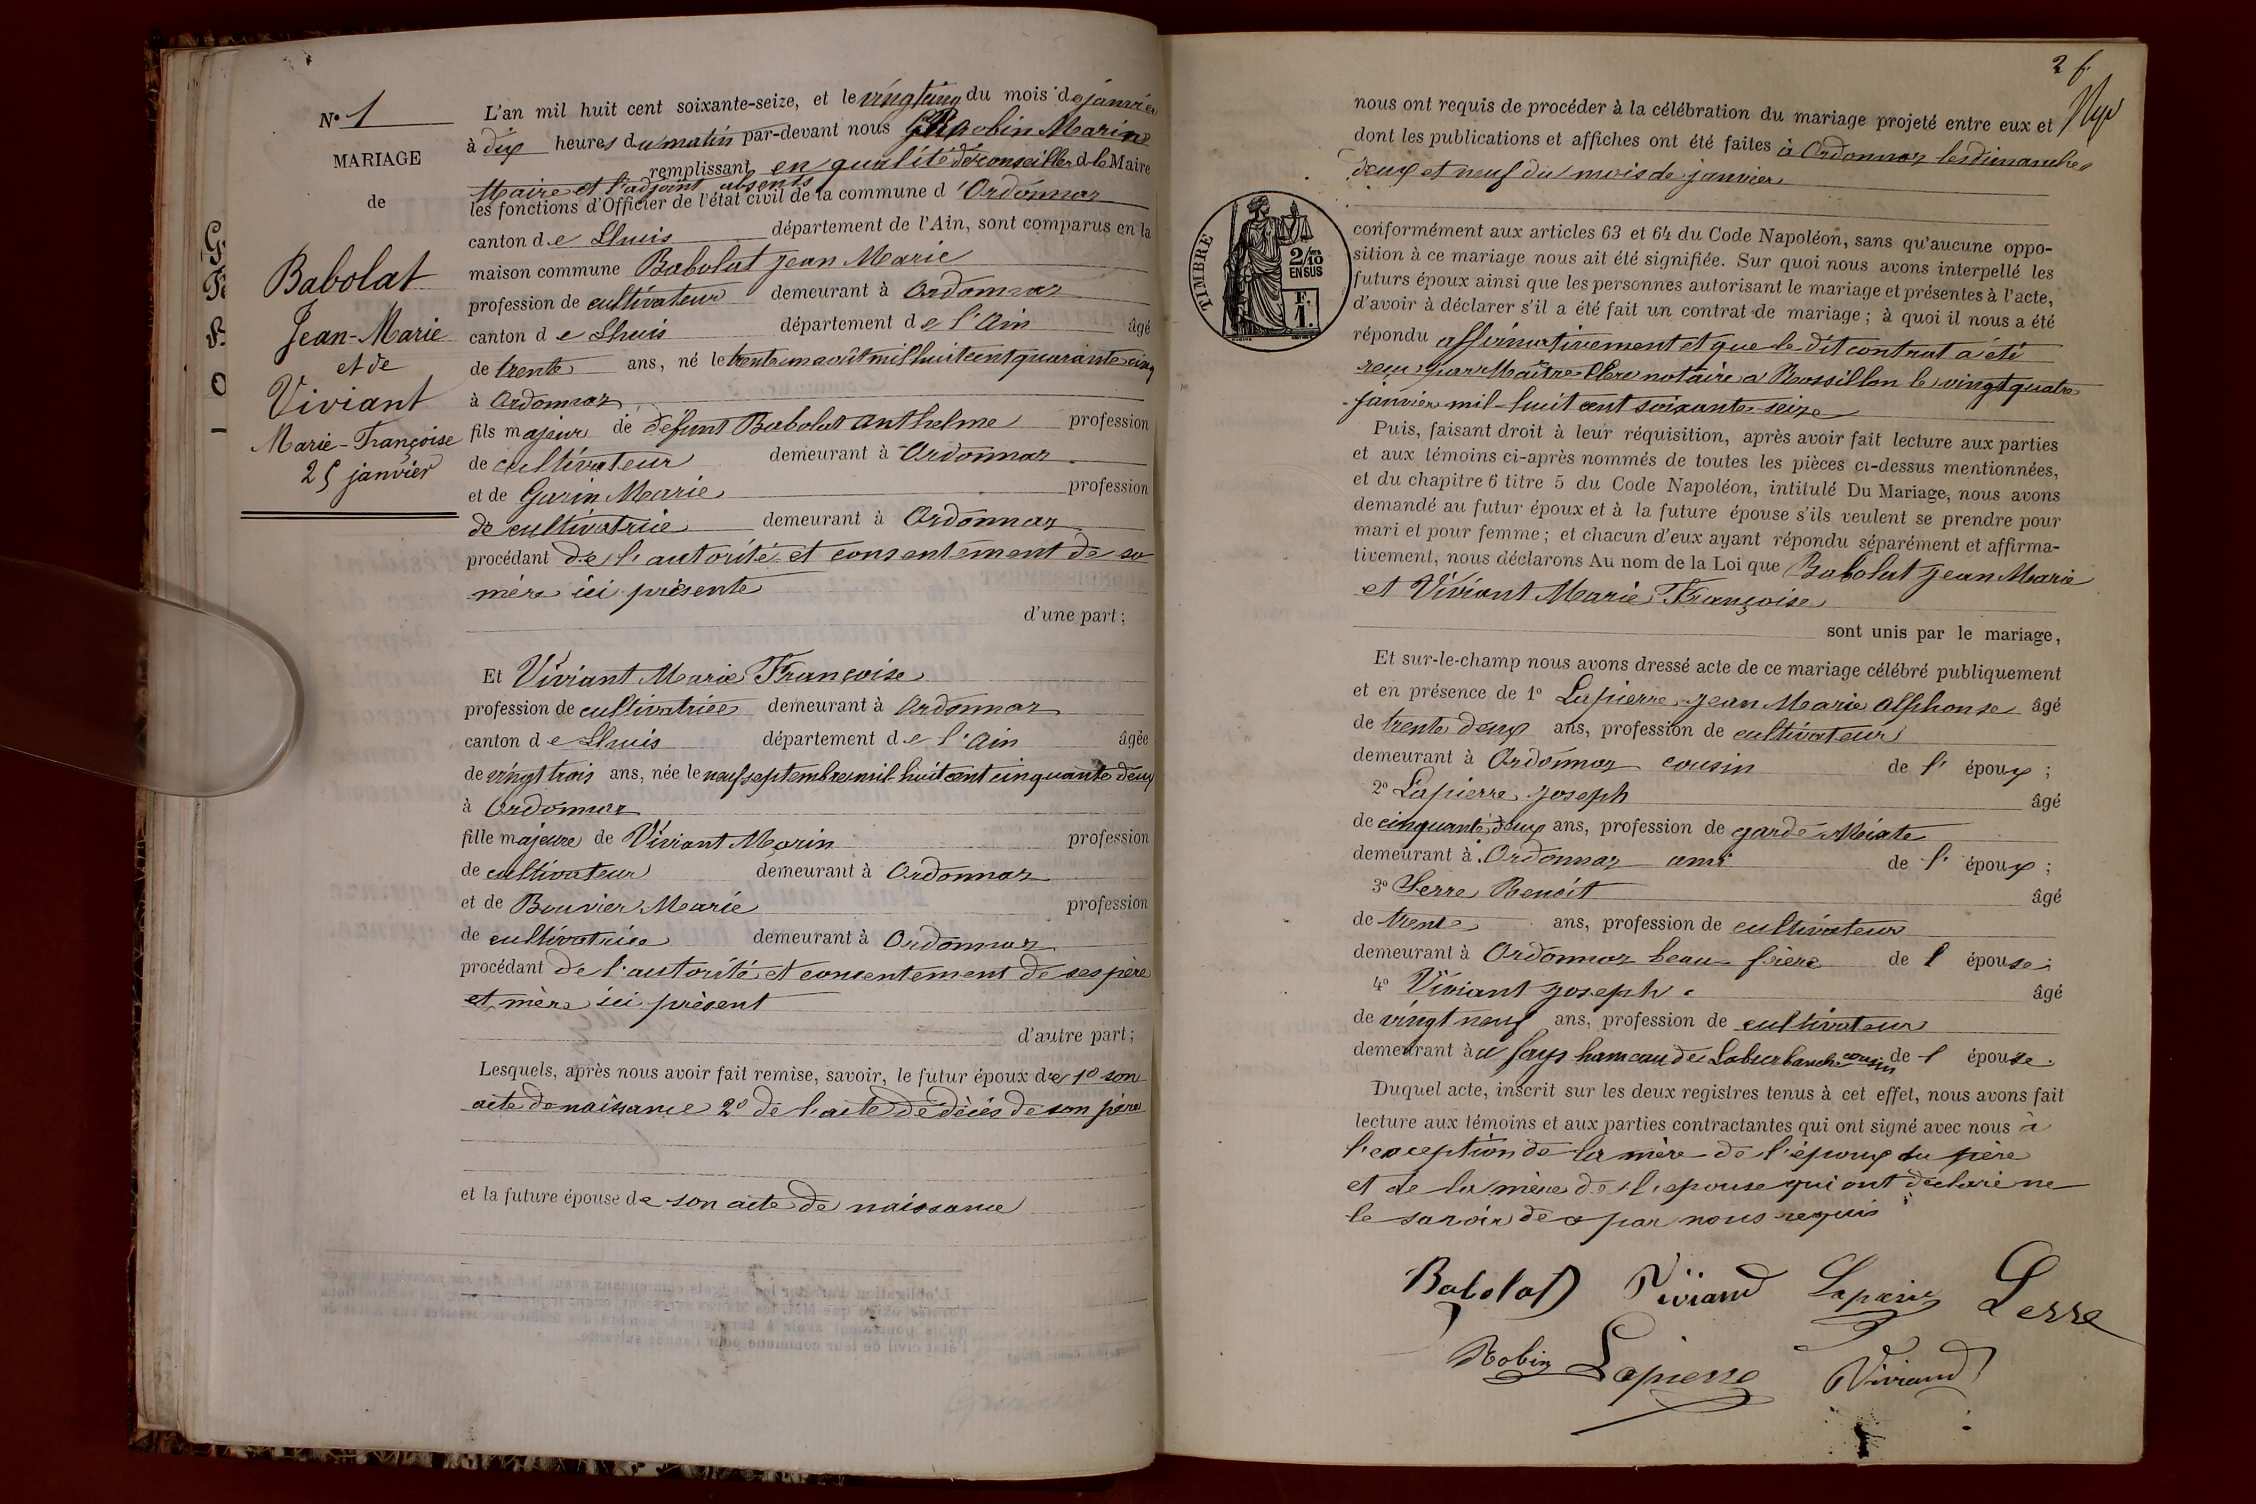 N° 1
MARIAGE
de
Babolat
Jean-Marie
et de
Viviant
Marie-Françoise
25 janvier
L'an mil huit cent soixante-seize, et le vingt cinq du mois de janvier
à dix heures du matin par-devant nous Robin Marin
remplissant en qualité de conseiller d le Maire
Maire et l'adjoint absents
les fonctions d'Officier de l'état civil de la commune d'Ordonnaz
canton de Lhuis département de l'Ain, sont comparus en la
maison commune Babolat Jean Marie
profession de cultivateur demeurant à Ordonnaz
canton de Lhuis département de l'Ain âgé
de trente ans, né le trente un août mil huit cent quarante cinq
à Ordonnaz
fils majeur de défunt Babolat Anthelme profession
de cultivateur demeurant à Ordonnaz
et de Garin Marie profession
de cultivatrice demeurant à Ordonnaz
procédant de l'autorité et consentement de sa
mère ici présente
d'une part;
Et Viviant Marie Françoise
profession de cultivatrice demeurant à Ordonnaz
canton de Lhuis département de l'Ain âgée
de vingt trois ans, née le neuf septembre mil huit cent cinquante deux
à Ordonnaz
fille majeure de Viviant Marin profession
de cultivateur demeurant à Ordonnaz
et de Bouvier Marie profession
de cultivatrice demeurant à Ordonnaz
procédant de l'autorité et consentement de ses père
et mère ici présent
d'autre part;
Lesquels, après nous avoir fait remise, savoir, le futur époux de 1° son
acte de naissance 2° de l'acte de décès de son père
et la future épouse de son acte de naissance
2 f.
nous ont requis de procéder à la célébration du mariage projeté entre eux et
dont les publications et affiches ont été faites à Ordonnaz les dimanches
deux et neuf du mois de janvier
TIMBRE
2/10
EN SUS
F.
1.
conformément aux articles 63 et 64 du Code Napoléon, sans qu'aucune oppo-
sition à ce mariage nous ait été signifiée. Sur quoi nous avons interpellé les
futurs époux ainsi que les personnes autorisant le mariage et présentes à l'acte,
d'avoir à déclarer s'il a été fait un contrat de mariage; à quoi il nous a été
répondu affirmativement et que le dit contrat a été
reçu par Maître notaire a Rossillon le vingt quatre
janvier mil huit cent soixante seize
Puis, faisant droit à leur réquisition, après avoir fait lecture aux parties
et aux témoins ci-après nommés de toutes les pièces ci-dessus mentionnées,
et du chapitre 6 titre 5 du Code Napoléon, intitulé Du Mariage, nous avons
demandé au futur époux et à la future épouse s'ils veulent se prendre pour
mari et pour femme; et chacun d'eux ayant répondu séparément et affirma-
tivement, nous déclarons Au nom de la Loi que Babolat Jean Marie
et Viviant Marie Françoise
sont unis par le mariage,
Et sur-le-champ nous avons dressé acte de ce mariage célébré publiquement
et en présence de 1° Lapierre Jean Marie Alphonse âgé
de trente deux ans, profession de cultivateur
demeurant à Ordonnaz cousin de l'époux;
2° Lapierre Joseph âgé
de cinquante deux ans, profession de garde Mixte
demeurant à Ordonnaz ami de l'époux;
3° Serre Benoit âgé
de trente ans, profession de cultivateur
demeurant à Ordonnaz beau-frère de l épouse;
4° Viviant Joseph âgé
de vingt neuf ans, profession de cultivateur
demeurant à fays hameau de cousin de l épouse.
Duquel acte, inscrit sur les deux registres tenus à cet effet, nous avons fait
lecture aux témoins et aux parties contractantes qui ont signé avec nous à
l'exception de la mère de l'époux du père
et de la mère de l'épouse qui ont déclaré ne
le savoir de par nous requis
Babolat Viviand Lapierre Serre
Robin Lapierre Viviand